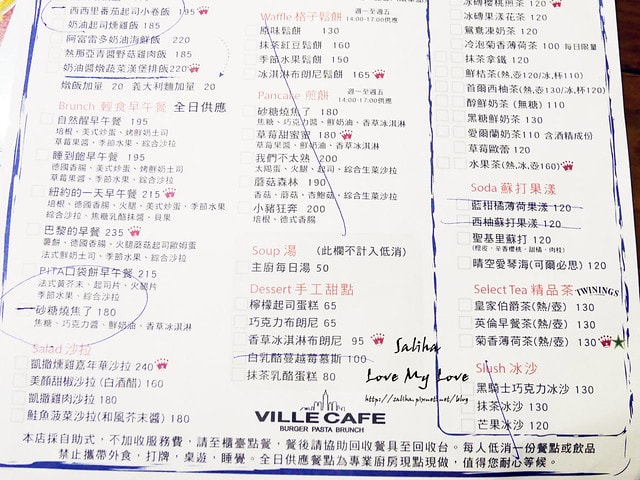 西西里番茄起司小卷飯 195
奶油起司燻雞飯 185
阿富雷多奶油海鮮飯 215
熱那亞青醬野菇雞肉飯 185
奶油醬燉蔬菜漢堡排飯220
燉飯加量 20 義大利麵加量 20
Brunch 輕食早午餐 全日供應
自然醒早午餐 195
培根、美式炒蛋、烤鮮奶土司
草莓果醬、季節水果、綜合沙拉
睡到飽早午餐 195
德國香腸、美式炒蛋、烤鮮奶土司
草莓果醬、季節水果、綜合沙拉
紐約的一天早午餐 215
培根、德國香腸、火腿、美式炒蛋、季節水果
綜合沙拉、焦糖乳酪抹醬、貝果
巴黎的早午餐 235
薯餅、德國香腸、火腿蘑菇起司歐姆蛋
法式鮮奶土司、季節水果、綜合沙拉
PITA口袋餅早午餐 215
法式黃芥末、起司片、火腿片
季節水果、綜合沙拉
砂糖燒焦了 180
焦糖、巧克力醬、鮮奶油、香草冰淇淋
Salad 沙拉
凱撒燻雞嘉年華沙拉 240
美顏甜椒沙拉(白酒醋) 160
凱撒雞肉沙拉 180
鮭魚菠菜沙拉(和風芥末醬) 180
Waffle 格子鬆餅 週一至週五
14:00-17:00供應
原味鬆餅 130
抹茶紅豆鬆餅 160
季節水果鬆餅 150
冰淇淋布朗尼鬆餅 165
Pancake 煎餅 週一至週五
14:00-17:00供應
砂糖燒焦了 180
焦糖、巧克力醬、鮮奶油、香草冰淇淋
草莓甜蜜蜜 180
草莓果醬、鮮奶油、香草冰淇淋
我們不太熟 200
太陽蛋、火腿、起司、綜合生菜沙拉
蘑菇森林 190
香菇、蘑菇、杏鮑菇、綜合生菜沙拉
小豬狂奔 200
培根、德式香腸
Soup 湯 (此欄不計入低消)
主廚每日湯 50
Dessert 手工甜點
檸檬起司蛋糕 65
巧克力布朗尼 65
香草冰淇淋布朗尼 95
白乳酪蔓越莓慕斯 100
抹茶乳酪蛋糕 80
Saliha
Love My Love
https://saliha.pixnet.net/blog
VILLE CAFE
BURGER PASTA BRUNCH
冰磚櫻桃煎茶 200
冰磚果漾花茶 120
鴛鴦凍奶茶 120
冷泡菊香薄荷茶 100 每日限量
抹茶拿鐵 120
鮮桔茶(熱,壺120/冰,杯110)
首爾西柚茶(熱,壺130/冰,杯120)
醇鮮奶茶(無糖) 110
黑糖鮮奶茶 130
愛爾蘭奶茶110 含酒精成份
草莓歐蕾 120
水果茶(熱,冰,壺160)
Soda 蘇打果漾
藍柑橘薄荷果漾 120
西柚蘇打果漾 120
聖基里蘇打 120
晴空愛琴海(可爾必思) 120
Select Tea 精品茶 TWININGS
皇家伯爵茶(熱/壺) 130
英倫早餐茶(熱/壺) 130
菊香薄荷茶(熱/壺) 130
Slush 冰沙
黑騎士巧克力冰沙 130
抹茶冰沙 130
芒果冰沙 120
本店採自助式,不加收服務費,請至櫃臺點餐,餐後請協助回收餐具至回收台。每人低消一份餐點或飲品
禁止攜帶外食,打牌,桌遊,睡覺。全日供應餐點為專業廚房現點現做,值得您耐心等候。